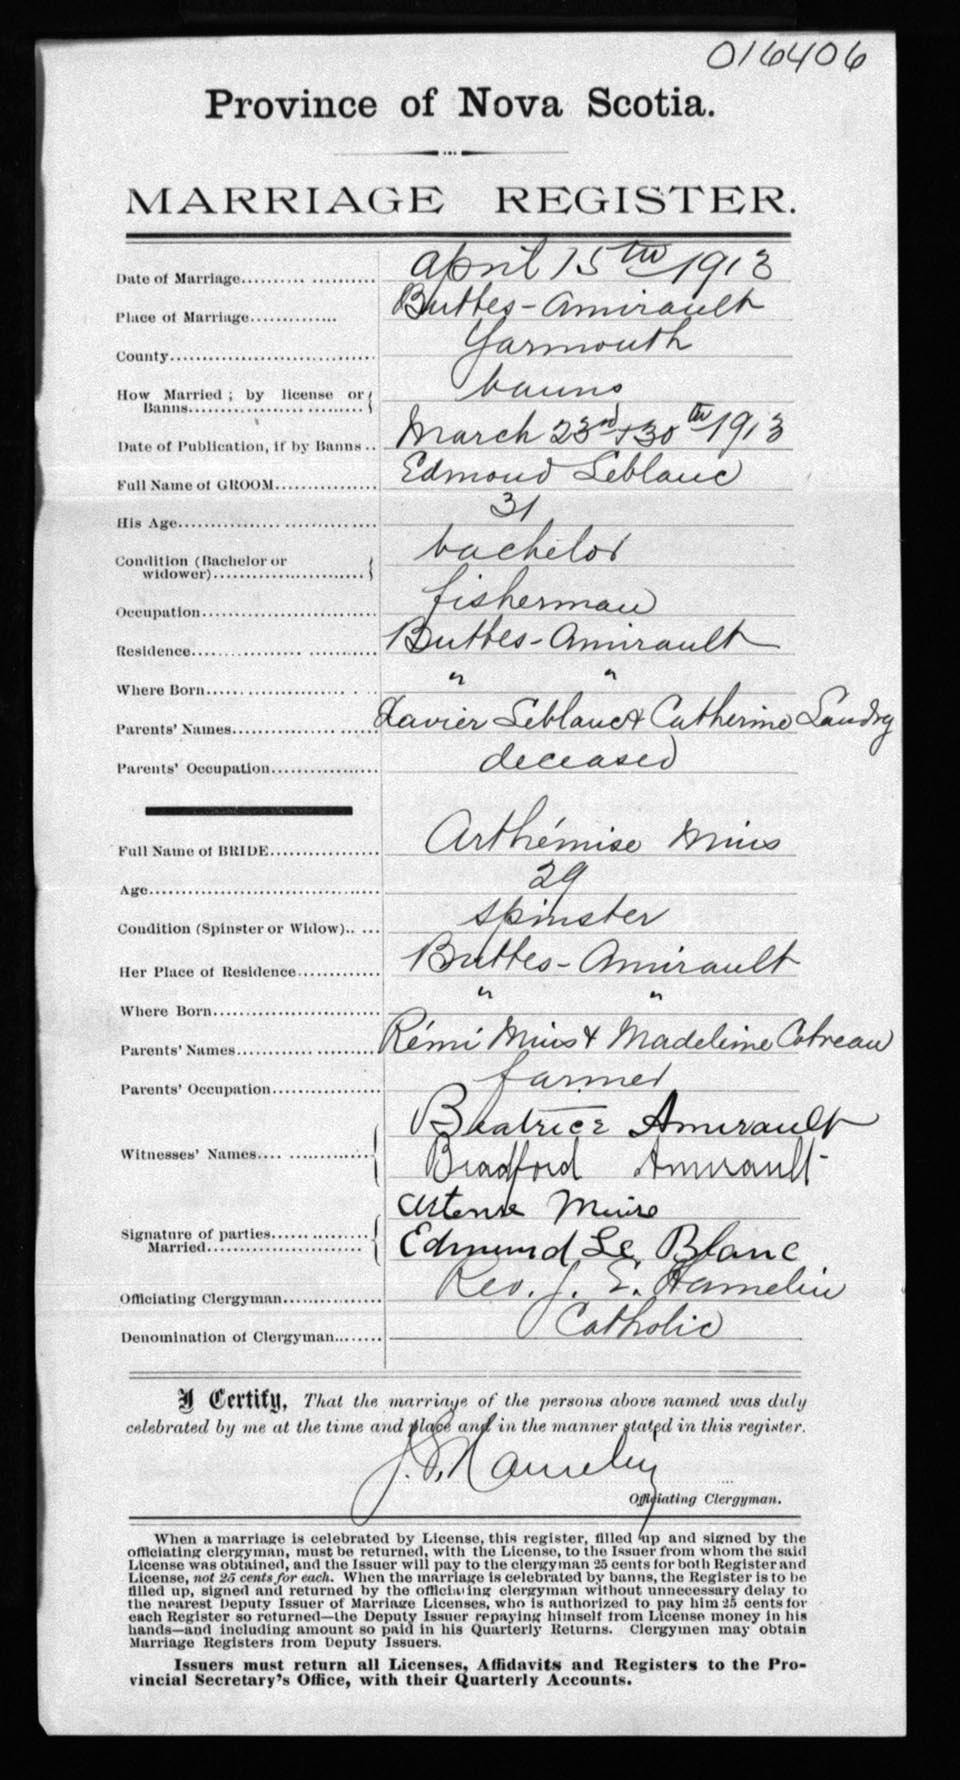 016406
Province of Nova Scotia.
MARRIAGE REGISTER.
Date of Marriage.................... April 15th 1913
Place of Marriage.............. Buttes-Amirault
County.............................. Yarmouth
How Married ; by license or
Banns.............................. banns
Date of Publication, if by Banns.. March 23rd + 30th 1913
Full Name of GROOM................ Edmond Leblanc
His Age.............................. 31
Condition (Bachelor or
widower)........................ bachelor
Occupation........................... fisherman
Residence............................ Buttes-Amirault
Where Born.................... " "
Parents' Names.................... Xavier Leblanc & Catherine Landry
Parents' Occupation................. deceased
Full Name of BRIDE................. Arthémise Mius
Age................................... 29
Condition (Spinster or Widow)..... spinster
Her Place of Residence............ Buttes-Amirault
Where Born......................... " "
Parents' Names..................... Rémi Mius & Madeleine Cotreau
Parents' Occupation................ farmer
Witnesses' Names.................. Beatrice Amirault
Bradford Amirault
Signature of parties
Married............................ Muise
Edmund Le Blanc
Officiating Clergyman............... Rev. J. E. Hamelin
Denomination of Clergyman........ Catholic
I Certify, That the marriage of the persons above named was duly
celebrated by me at the time and place and in the manner stated in this register.
J. E. Hamelin
Officiating Clergyman.
When a marriage is celebrated by License, this register, filled up and signed by the
officiating clergyman, must be returned, with the License, to the Issuer from whom the said
License was obtained, and the Issuer will pay to the clergyman 25 cents for both Register and
License, not 25 cents for each. When the marriage is celebrated by banns, the Register is to be
filled up, signed and returned by the officiating clergyman without unnecessary delay to
the nearest Deputy Issuer of Marriage Licenses, who is authorized to pay him 25 cents for
each Register so returned—the Deputy Issuer repaying himself from License money in his
hands—and including amount so paid in his Quarterly Returns. Clergymen may obtain
Marriage Registers from Deputy Issuers.
Issuers must return all Licenses, Affidavits and Registers to the Pro-
vincial Secretary's Office, with their Quarterly Accounts.